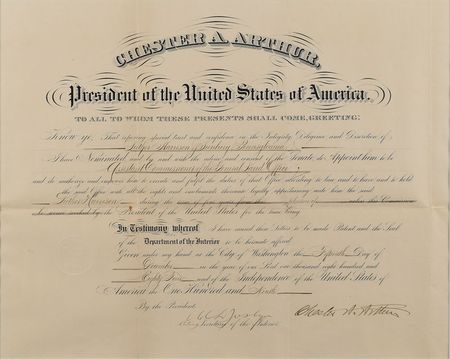 CHESTER A. ARTHUR,
President of the United States of America.
TO ALL TO WHOM THESE PRESENTS SHALL COME, GREETING:
Know ye; That reposing special trust and confidence in the Integrity, Diligence and Discretion of
Luther Harrison, of Sunbury, Pennsylvania,
I have Nominated and by and with the advice and consent of the Senate do Appoint him to be
of the General Land Office,
and do authorize and empower him to execute and fulfil the duties of that Office according to law and to have and to hold
the said Office with all the rights and emoluments thereunto legally appertaining unto him the said
Luther Harrison, during the
President of the United States for the time being.
In Testimony whereof I have caused these Letters to be made Patent and the Seal
of the Department of the Interior to be hereunto affixed.
Given under my hand at the City of Washington the Day of
in the year of our Lord one thousand eight hundred and
Eighty and of the Independence of the United States of
America the One Hundred and
By the President:
Chester A. Arthur
Secretary of the Interior.